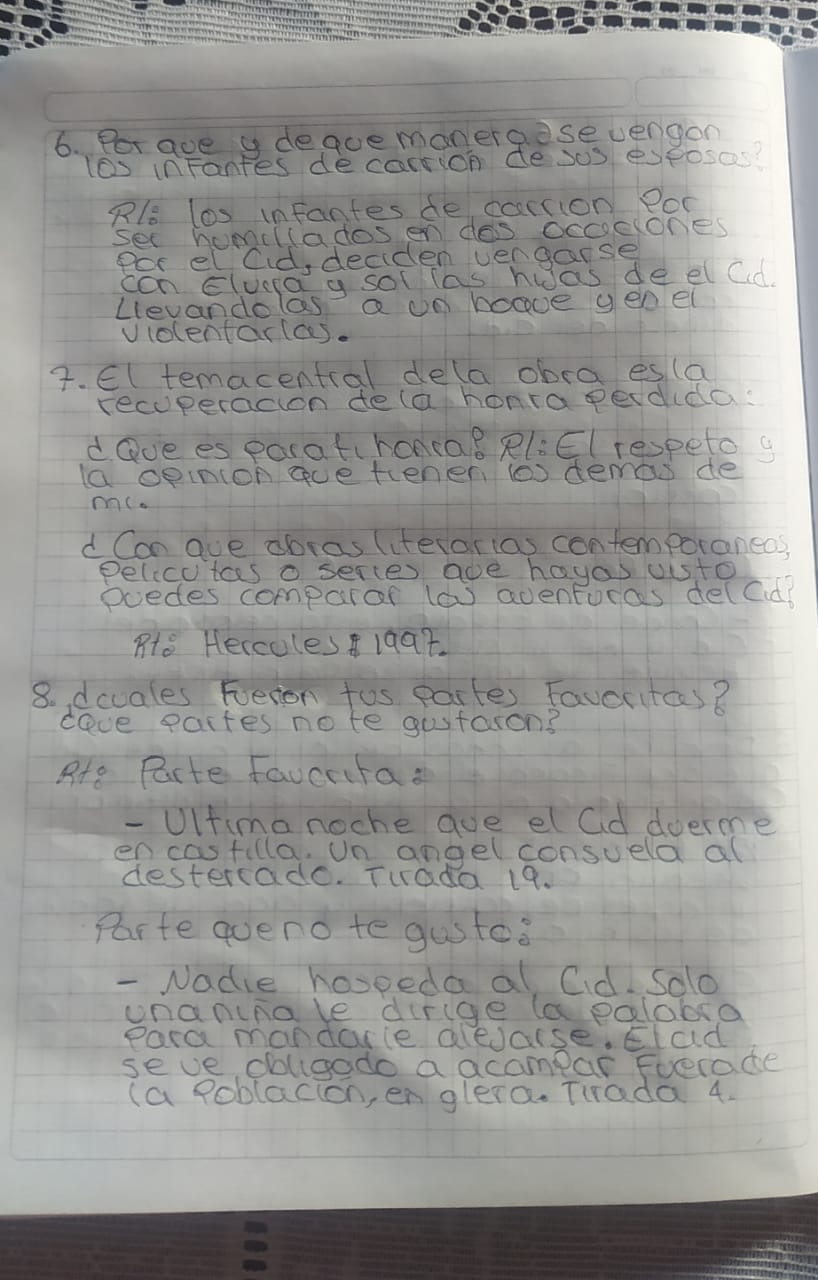 6. Por que y de que manera se vengan
los infantes de carrion de sus esposas?
R/: los infantes de carrion por
ser humillados en dos ocaciones
por el Cid, deciden vengarse
con Elvira y sol las hijas de el Cid.
Llevandolas a un boque y en el
violentarlas.
7. El tema central de la obra es la
recuperacion de la honra perdida:
¿Que es para ti honra? R/: El respeto y
la opinion que tienen los demas de
mi.
¿Con que obras literarias contemporaneas,
peliculas o series que hayas visto
puedes comparar las aventuras del Cid?
Rt: Hercules 1997.
8. ¿cuales Fueron tus partes Favoritas?
¿Que partes no te gustaron?
Rt: Parte Favorita:
- Ultima noche que el Cid duerme
en castilla. Un angel consuela al
desterrado. Tirada 19.
Parte que no te gusto:
- Nadie hospeda al Cid. Solo
una niña le dirige la palabra
para mandarle alejarse. El cid
se ve obligado a acampar Fuera de
la Poblacion, en glera. Tirada 4.